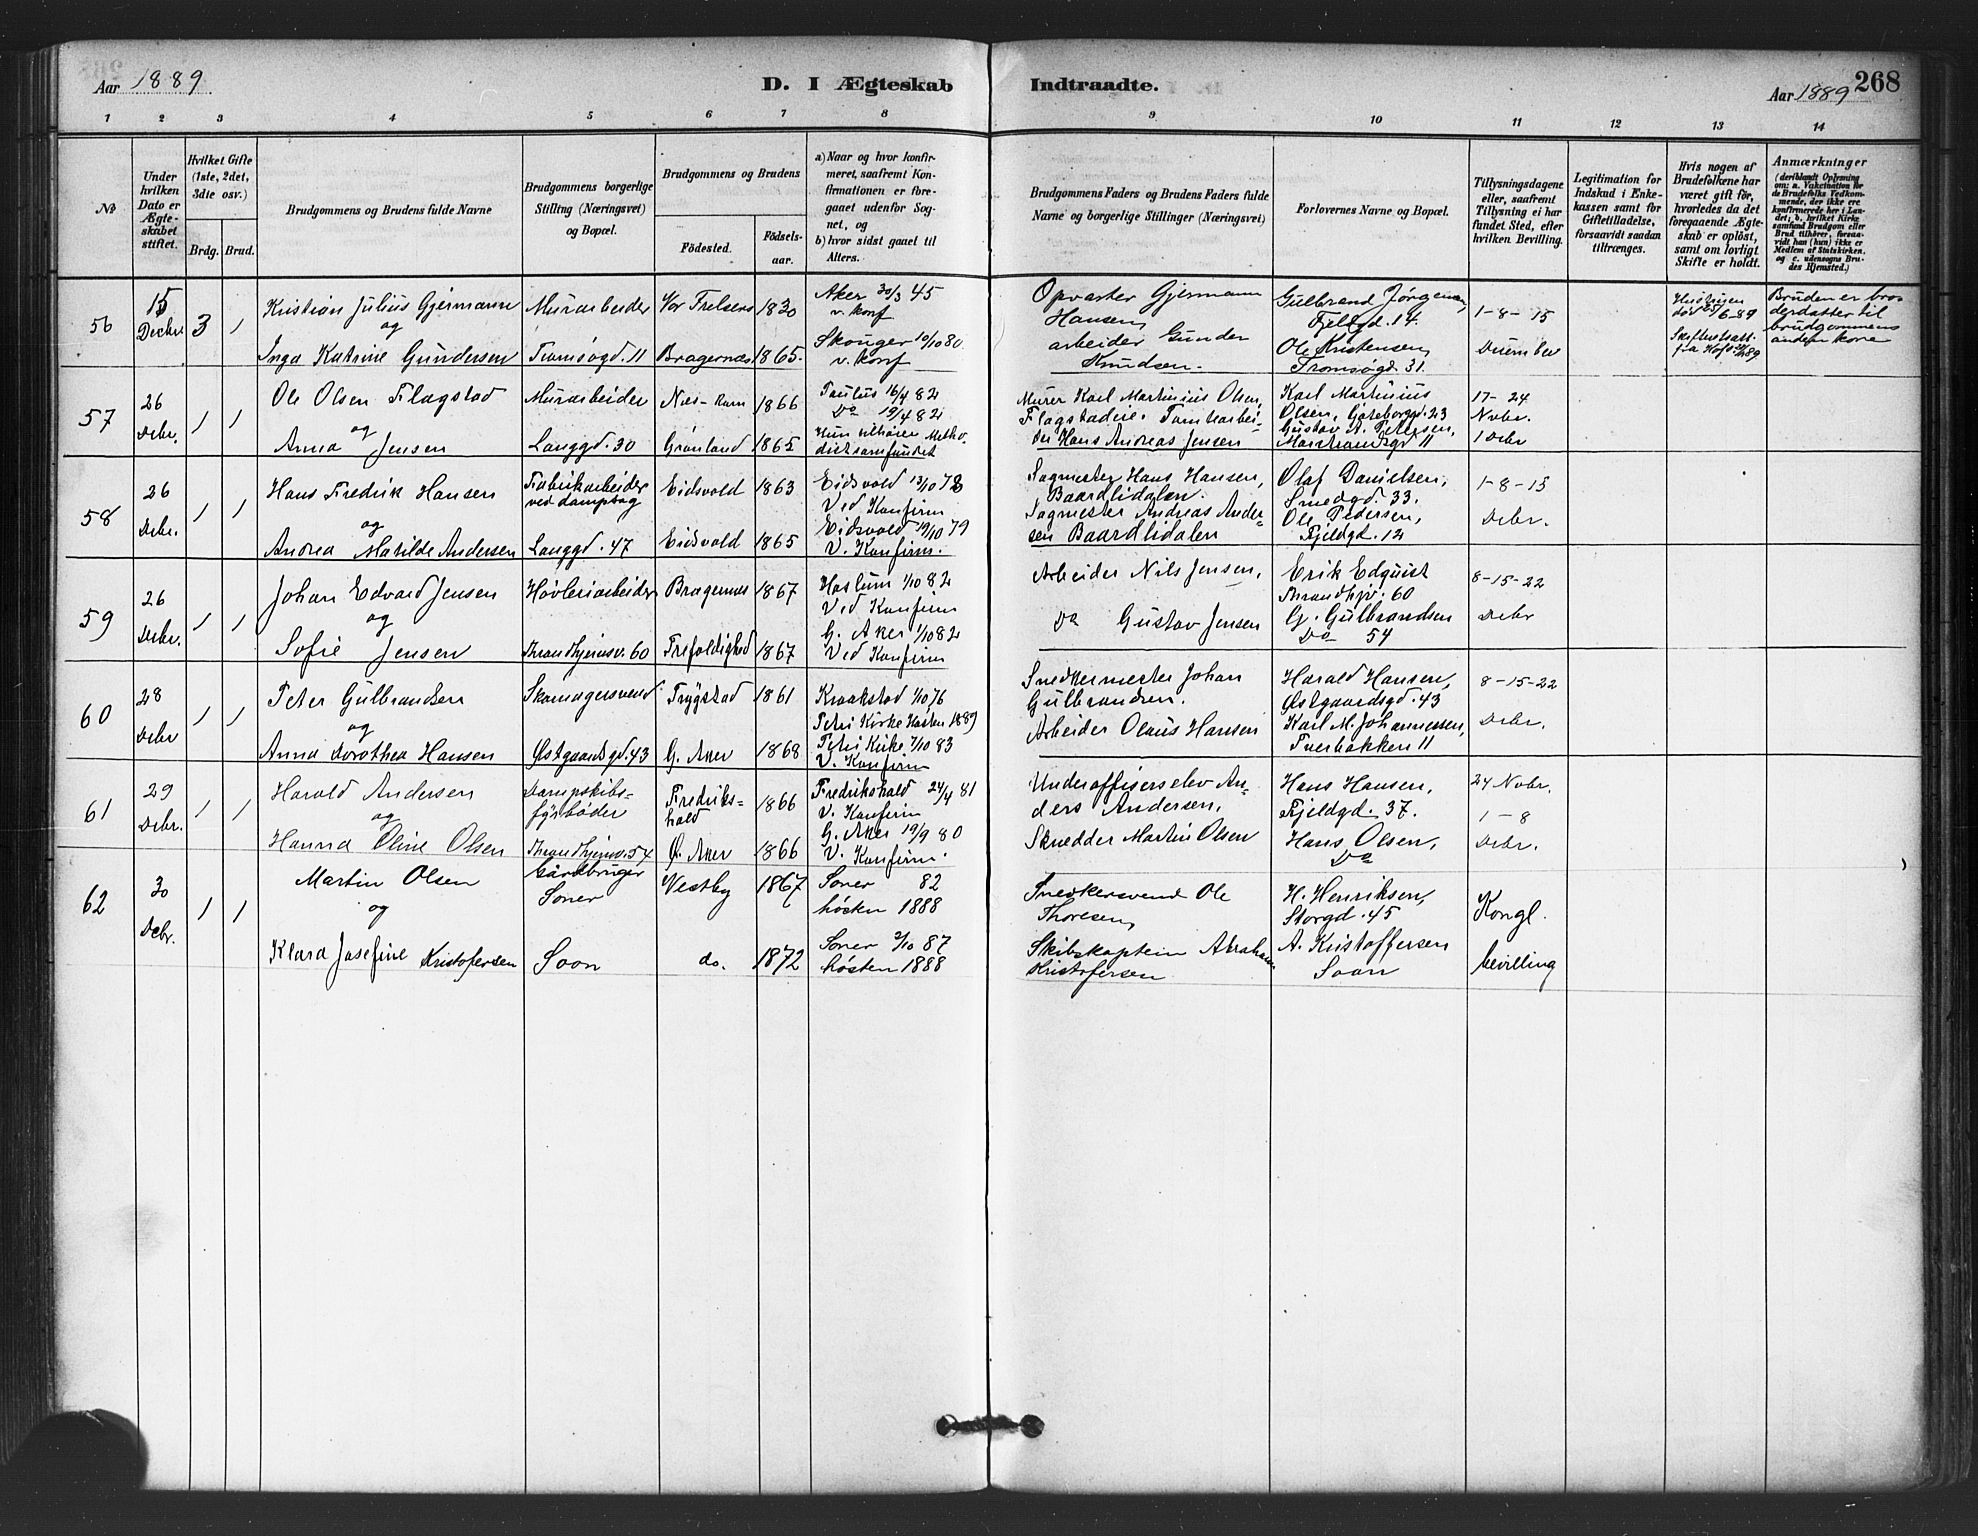 Aar 1889
D. I Ægteskab Indtraadte.
268
Aar 1889
1 2 3 4 5 6 7 8 9 10 11 12 13 14
№
Under hvilken Dato er Ægteskabet stiftet.
Hvilket Gifte (1ste, 2det, 3die osv.)
Brdg. Brud.
Brudgommens og Brudens fulde Navne
Brudgommens borgerlige Stilling (Næringsvei) og Bopæl.
Brudgommens og Brudens
Födested.
Födselsaar.
a) Naar og hvor konfirmeret, saafremt Konfirmationen er foregaaet udenfor Sognet, og
b) hvor sidst gaaet til Alters.
Brudgommens Faders og Brudens Faders fulde Navne og borgerlige Stillinger (Næringsvei)
Forlovernes Navne og Bopæl.
Tillysningsdagene eller, saafremt Tillysning ei har fundet Sted, efter hvilken Bevilling.
Legitimation for Indskud i Enkekassen samt for Giftetilladelse, forsaavidt saadan tiltrænges.
Hvis nogen af Brudefolkene har været gift för, hvorledes da det foregaaende Ægteskab er oplöst, samt om lovligt Skifte er holdt.
Anmærkninger (deriblandt Oplysning om: a. Vakcination for de Brudefolks Vedkommende, der ikke ere konfirmerede her i Landet; b. hvilket Kirkesamfund Brudgom eller Brud tilhörer, forsaavidt han (hun) ikke er Medlem af Statskirken, og c. udensogns Brudes Hjemsted.)
56 15 Decbr 3 1
Kristian Julius Gjermann Murarbeider Vor Frelsers 1820 Aker 30/3 45
og v. konf
Inga Katrine Gundersen Tromsøgd. 11 Bragernæs 1865. Skouger 10/10 80.
v. konf
Opvarter Gjermann Gulbrand Jørgensen 1-8-15
Hansen, Fjeldgd. 14.
arbeider Gunder Ole Kristensen, December
Knudsen. Tromsøgd. 31.
Bruden er broderdatter til brudgommens anden kone
57 26 Debr. 1 1
Ole Olsen Flagstad Murarbeider Næs-Rom 1866 Paulus 16/4 82
og Do 19/4 82
Anna Jensen Langgd. 30 Grønland 1865 Hun tilhører Methodistsamfundet
Murer Karl Martinius Olsen, Karl Martinius 17-24
Flagstadeie. Tomtearbei- Olsen, Gøteborggd. 23 Novbr.
der Hans Andreas Jensen Gustav A. Petersen, 1 Debr
Markveisgd 11
58 26 Debr. 1 1
Hans Fredrik Hansen Fabrikarbeider Eidsvold 1863 Eidsvold 13/10 78
ved dampsag Ved Konfirm
og Eidsvold 19/10 79
Andrea Matilde Andersen Langgd. 47 Eidsvold 1865 V. Konfirm.
Sagmester Hans Hansen, Olaf Danielsen, 1-8-15
Baardlidalen. Smedgd. 33.
Sagmester Andreas Ander- Ole Pedersen, Debr.
sen Baardlidalen Fjeldgd. 12
59 26 Debr. 1 1
Johan Edvard Jensen Høvleriarbeider Bragernæs 1867 Haslum 1/10 82
og Ved Konfirm
Sofie Jensen Throndhjemsv. 60 Trefoldighed 1867 G. Aker 1/10 82
Ved Konfirm
Arbeider Nils Jensen, Erik Edquist 8-15-22
Throndhjv. 60
Do Gustav Jensen G. Gulbrandsen Debr
Do 54
60 28 Debr 1 1
Peter Gulbrandsen Skomagersvend Trygstad 1861 Kraakstad 1/10 76
og Petri Kirke Høsten 1889
Anna Dorothea Hansen Østgaardsgd. 43 G. Aker 1868 Petri Kirke 7/10 83
V. Konfirm
Snedkermester Johan Harald Hansen, 8-15-22
Gulbrandsen. Østgaardsgd. 43
Arbeider Olaus Hansen Karl M. Johannessen, Debr.
Tverbakken 11
61 29 Debr. 1 1
Harald Andersen Dampskibs- Fredriks- 1866 Fredrikshald 24/4 81
og fyrbøder hald V. Konfirm
Hanna Oline Olsen Throndhjemsv. 54 Ø. Aker 1866 G. Aker 19/9 80
V. Konfirm.
Underoffisers elev An- Hans Hansen, 24 Novbr.
ders Andersen, Fjeldgd. 37. 1-8
Skrædder Martin Olsen Hans Olsen, Debr.
Do
62 30 Debr. 1 1
Martin Olsen Gårdbruger Vestby 1867 Soner 82
og Soner høsten 1888
Klara Josefine Kristofersen Soon do. 1872 Soner 2/10 87
høsten 1888
Snedkersvend Ole H. Henriksen, Kongl.
Thoresen, Storgd. 45
Skibskaptein Abraham A. Kristoffersen bevilling
Kristofersen Soon